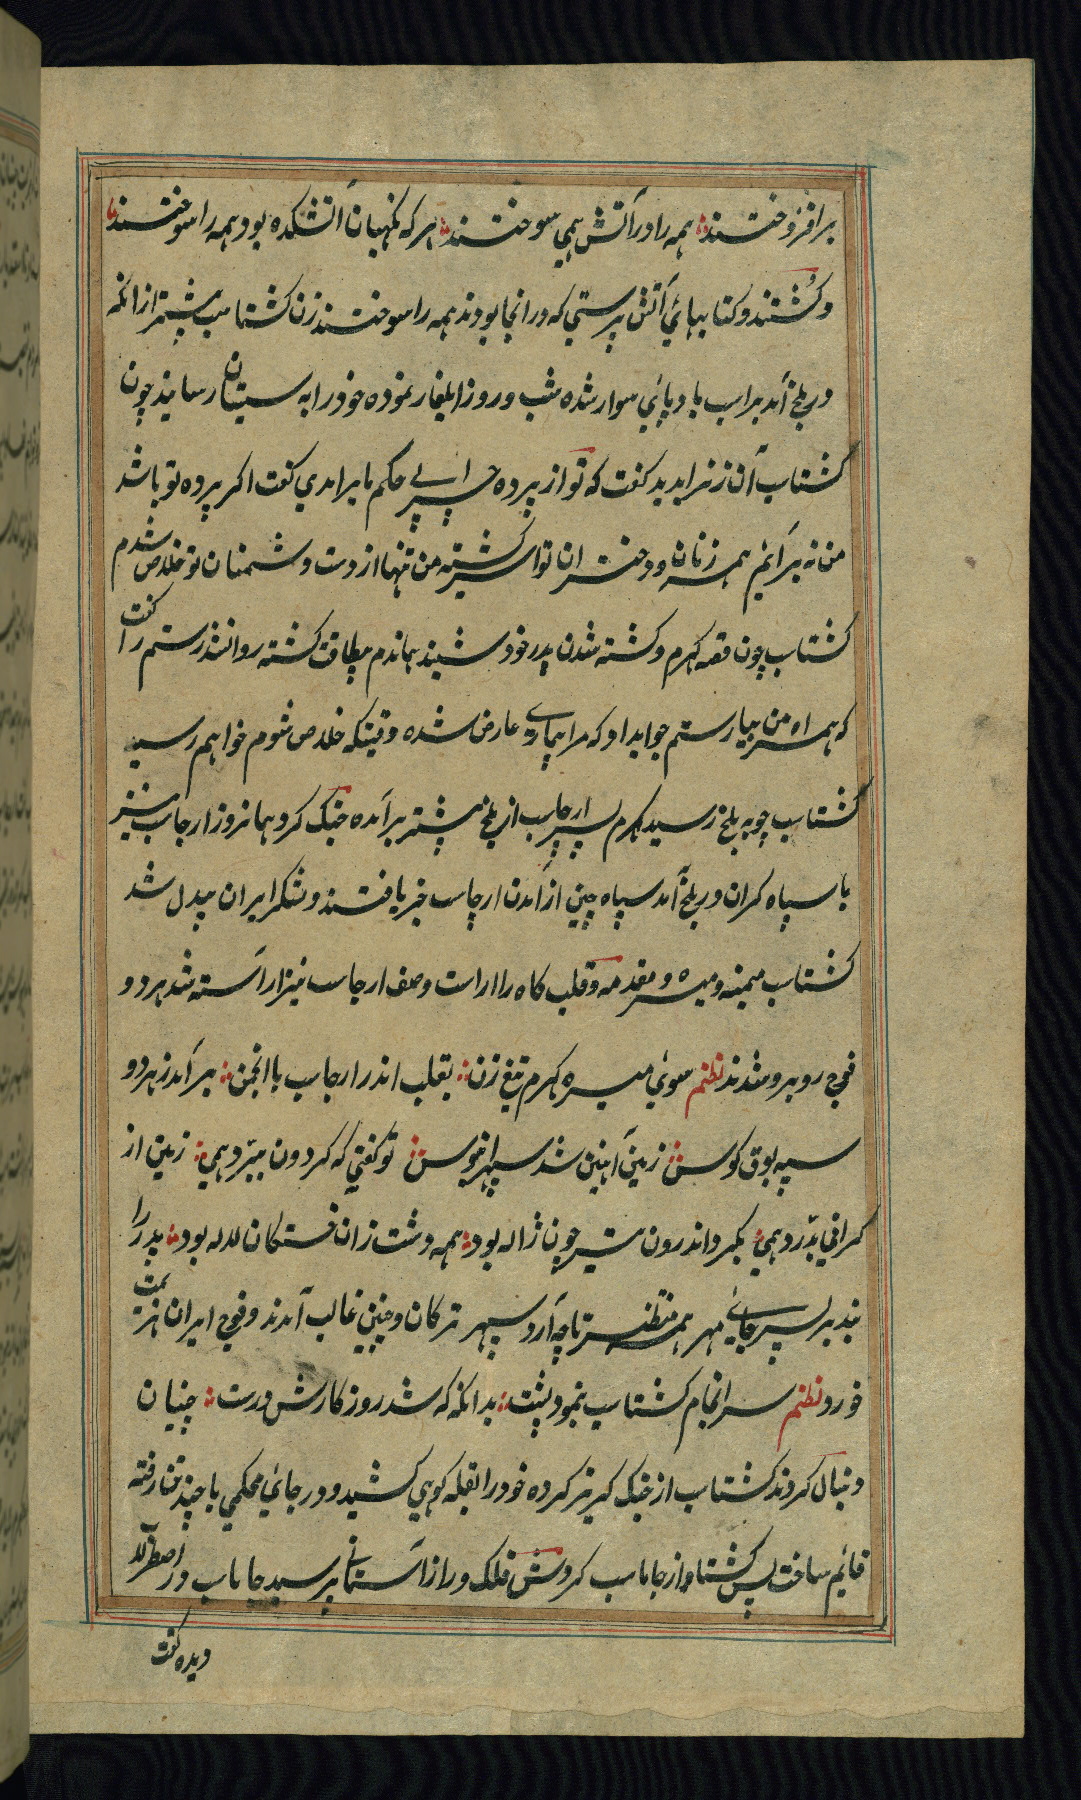 برافروختند همه را در آتش همي سوختند هر که نکهبان آتشکده بود همه را سوختند
و کشتند و کتابهائي آتش پرستي که در انجا بودند همه را سوختند زن کشتاسب پیشتر از انکه
در بلخ آمد بر اسب بادپائي سوار شده شب و روز ایلغار نموده خود را به سیستان رسانید چون
کشتاسب آن زنرا بدید کفت که تو از پرده چرا بے حکم ما برامدي کفت اکر پرده تو باشد
من نه برآیم همه زنان و دختران تو اسیر کشته من تنها از دست دشمنان تو خلاص شدم
کشتاسب چون قصه کهرم و کشته شدن پدر خود شنید هماندم بیطاقت کشته روانشد رستم را کفت
که همراه من بیا رستم جوابداد که مرا بیماریے عارض شده وقتیکه خلاص شوم خواهم رسید
کشتاسب چو به بلخ رسید کهرم پسر ارجاسب از بلخ پیشتر برآمده جنک کرد همانروز ارجاسب نیز
با سپاه کران در بلخ آمد سپاه چین از آمدن ارجاسب خبر یافتند و لشکر ایران بیدل شد
کشتاسب میمنه و میسره و مقدمه و قلب کاه را اراست و صف ارجاسب نیز اراسته شد هر دو
فوج روبرو شدند نظم سوئي میسره کهرم تیغ زن بقلب اندر ارجاسب با انجمن برآمد ز هر دو
سپه بوق کوس زمین آهنین شد سپهر ابنوس تو کفتي که کردون بپرد همي زمین از
کراني بدرد همي بکرد اندرون تیر چون ژاله بود همه دشت زان خستکان لاله بود پدر را
نبد بر پسر جائے مهر همه منتظر تا چه آرد سپهر ترکان و چنین غالب آمدند و فوج ایران هزیمت
خورد نظم سرانجام کشتاسب بنمود پشت بدانکه که شد روز کارش درشت چنیان
دنبال کردند کشتاسب از جنک کریز کرده خود را بقله کوهي کشید و در جائي محکمي با چند تن رفته
قائیم ساخت پس کشتاسب از جاماسب کردش فلک و راز آسماني پرسید جاماسب در اصطرلاب
دیده کفت